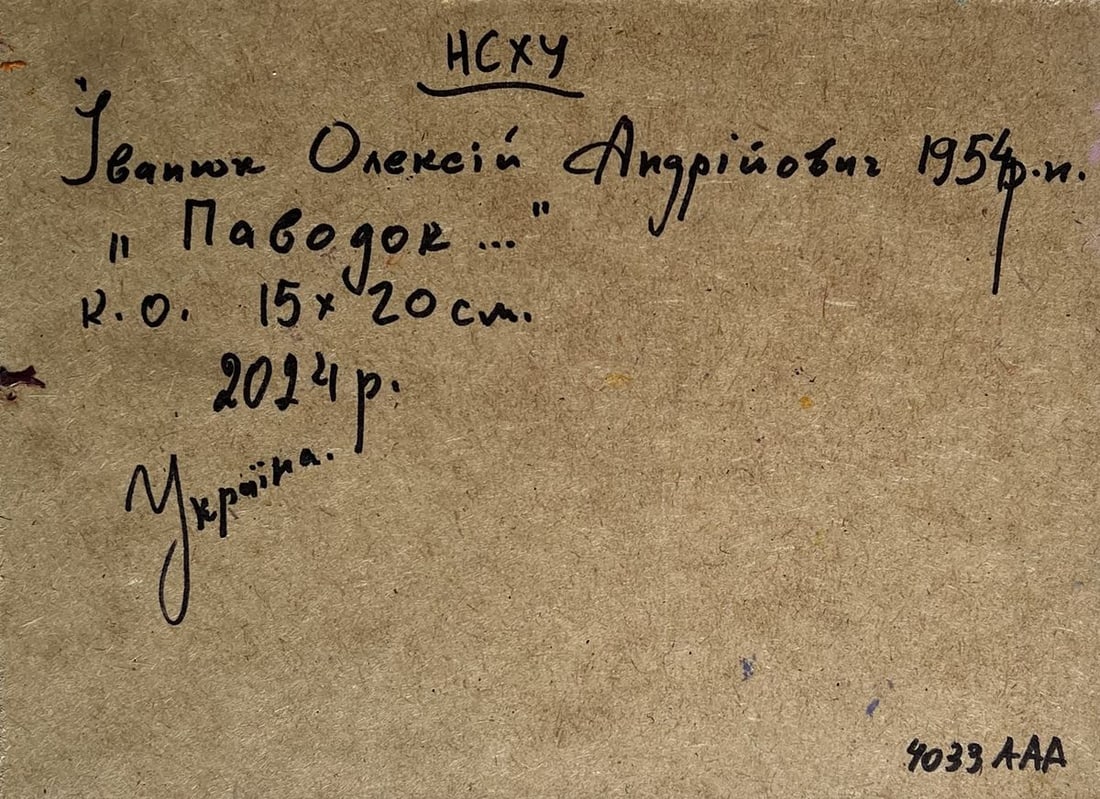 НСХУ
Іванюк Олексій Андрійович 1954р.н.
„ Паводок ..."
к.о. 15х20см.
2024р.
Україна.
4033 ААА